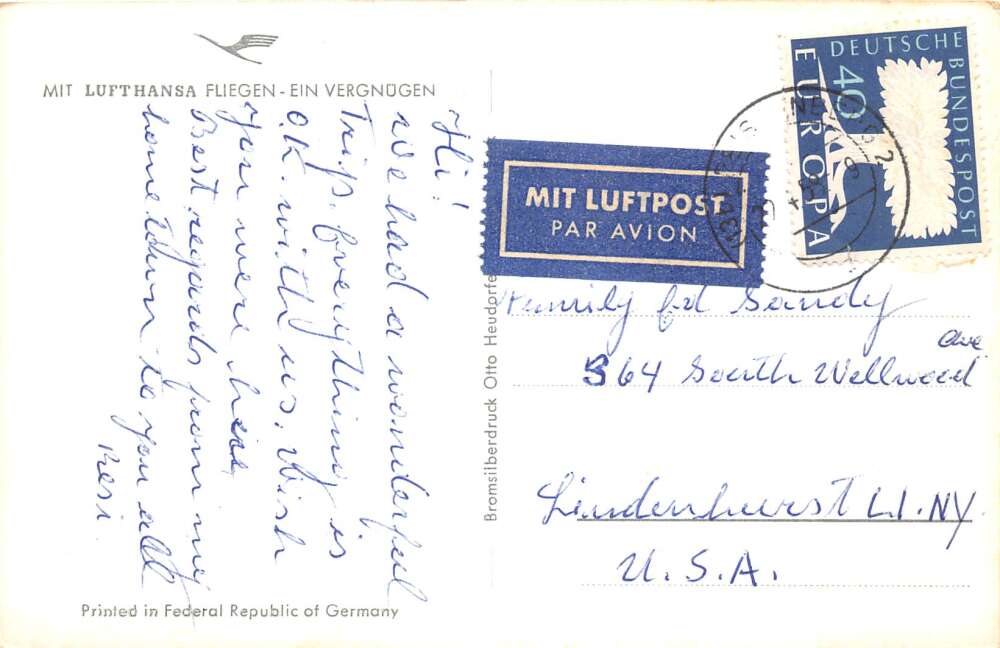 MIT LUFTHANSA FLIEGEN - EIN VERGNÜGEN
Hi!
We had a wonderful
Trip. Everything is
O.K. with us. Wish
you were here
Best regards from my
home town to you all
Resi
Printed in Federal Republic of Germany
Bromsilberdruck Otto Heudorfe
MIT LUFTPOST
PAR AVION
DEUTSCHE
BUNDESPOST
40
EUROPA
Sandy
364 South Wellwood
Ave
Lindenhurst L.I. NY
U.S.A.